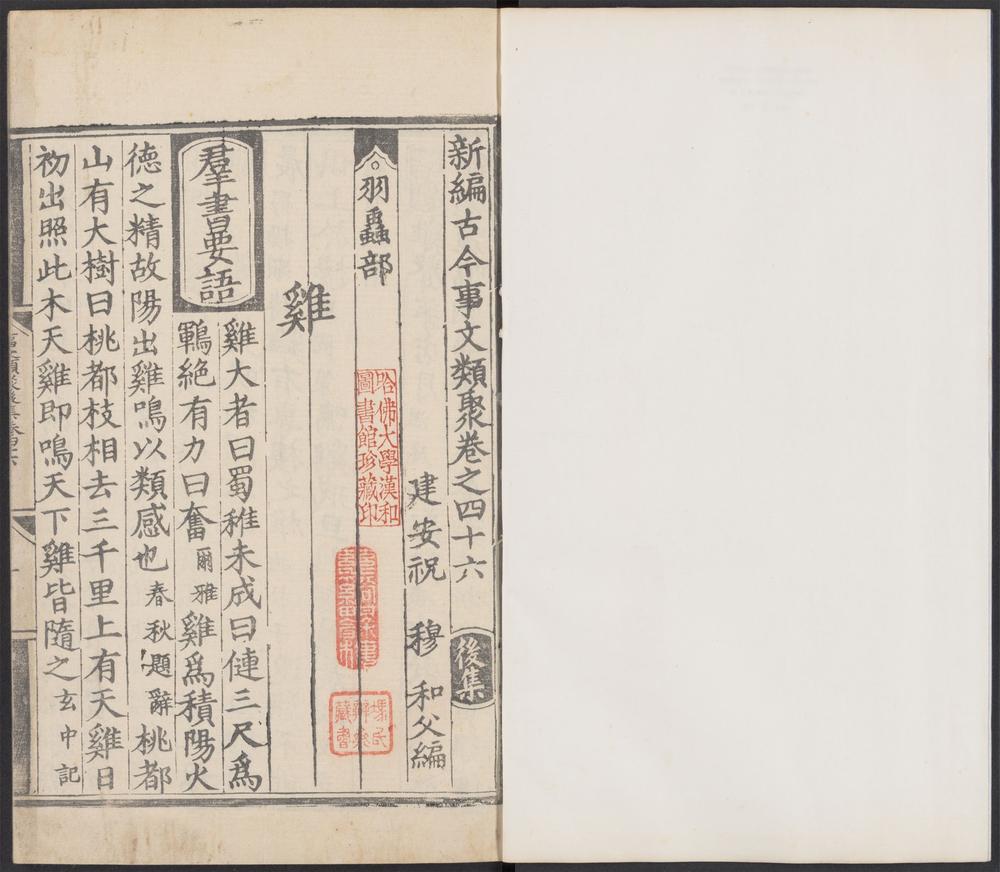 新編古今事文類聚卷之四十六 後集
建安祝 穆 和父編
羽蟲部
雞
羣書要語
雞大者曰蜀稚未成曰僆三尺爲
鶤絶有力曰奮爾雅雞爲積陽火
德之精故陽出雞鳴以類感也春秋題辭桃都
山有大樹曰桃都枝相去三千里上有天雞日
初出照此木天雞即鳴天下雞皆隨之玄中記
哈佛大學漢和
圖書館珍藏印